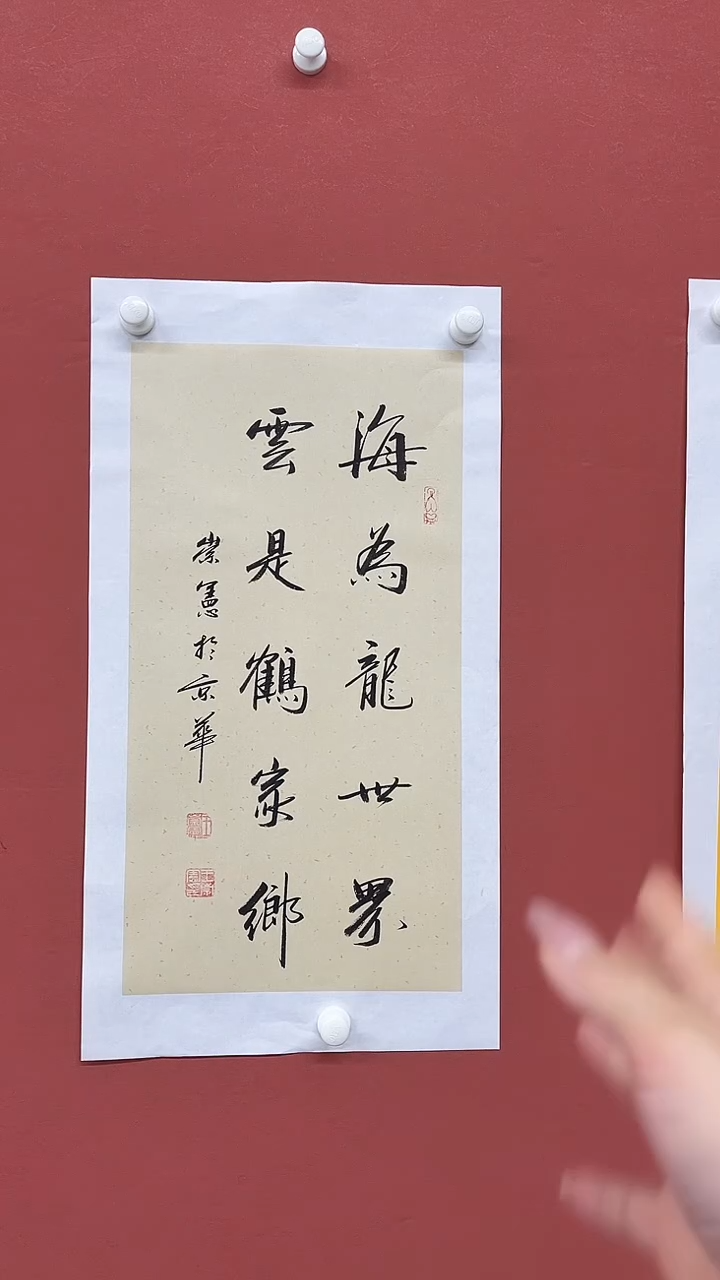 海為龍世界
雲是鶴家鄉
崇憲於京華